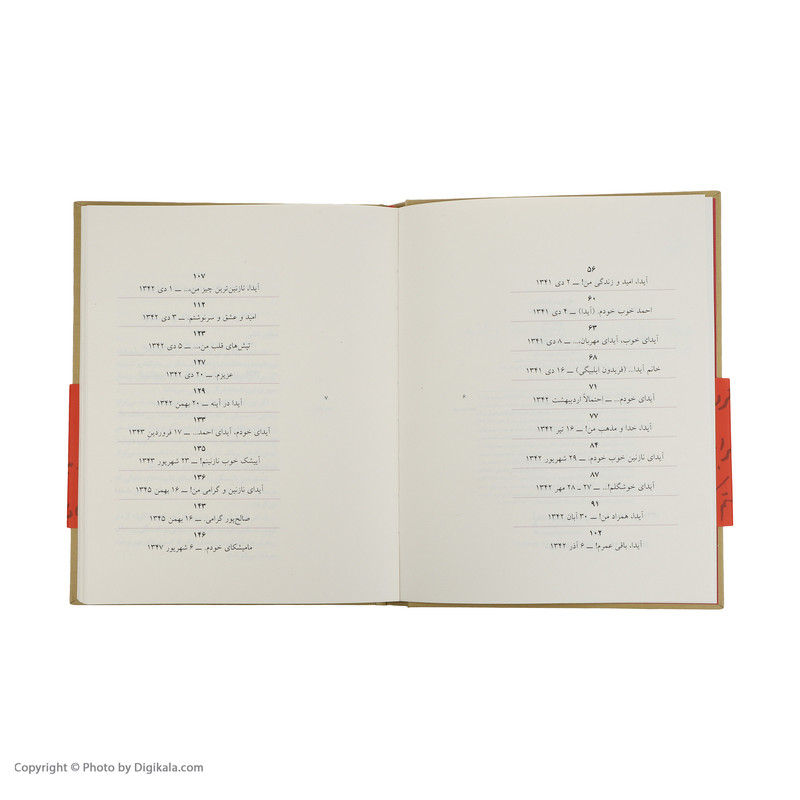 ۵۶
آیدا، امید و زندگی من! — ۲ دی ۱۳۴۱
۶۰
احمد خوب خودم. (آیدا) — ۴ دی ۱۳۴۱
۶۳
آیدای خوب، آیدای مهربان،... — ۸ دی ۱۳۴۱
۶۸
خانم آیدا... (فریدون ایل‌بیگی) — ۱۶ دی ۱۳۴۱
۷۱
آیدای خودم... — احتمالاً اردیبهشت ۱۳۴۲
۷۷
آیدا، خدا و مذهب من! — ۱۶ تیر ۱۳۴۲
۸۴
آیدای نازنین خوب خودم. — ۲۹ شهریور ۱۳۴۲
۸۷
آیدای خوشگلم!... — ۲۷ ـ ۲۸ مهر ۱۳۴۲
۹۱
آیدا، همزاد من! — ۳۰ آبان ۱۳۴۲
۱۰۲
آیدا، باقی عمرم! — ۶ آذر ۱۳۴۲
۶
۱۰۷
آیدا، نازنین‌ترین چیز من،... — ۱ دی ۱۳۴۲
۱۱۲
امید و عشق و سرنوشتم. — ۳ دی ۱۳۴۲
۱۲۳
تپش‌های قلب من،... — ۵ دی ۱۳۴۲
۱۲۷
عزیزم. — ۲۰ دی ۱۳۴۲
۱۲۹
آیدا در آینه — ۲۰ بهمن ۱۳۴۲
۱۳۳
آیدای خودم، آیدای احمد... — ۱۷ فروردین ۱۳۴۳
۱۳۵
آییشک خوب نازنینم! — ۲۳ شهریور ۱۳۴۳
۱۳۶
آیدای نازنین و گرامی من! — ۱۶ بهمن ۱۳۴۵
۱۴۳
صالح‌پور گرامی. — ۱۶ بهمن ۱۳۴۵
۱۴۶
مامیشکای خودم. — ۶ شهریور ۱۳۴۷
۷
Copyright © Photo by Digikala.com